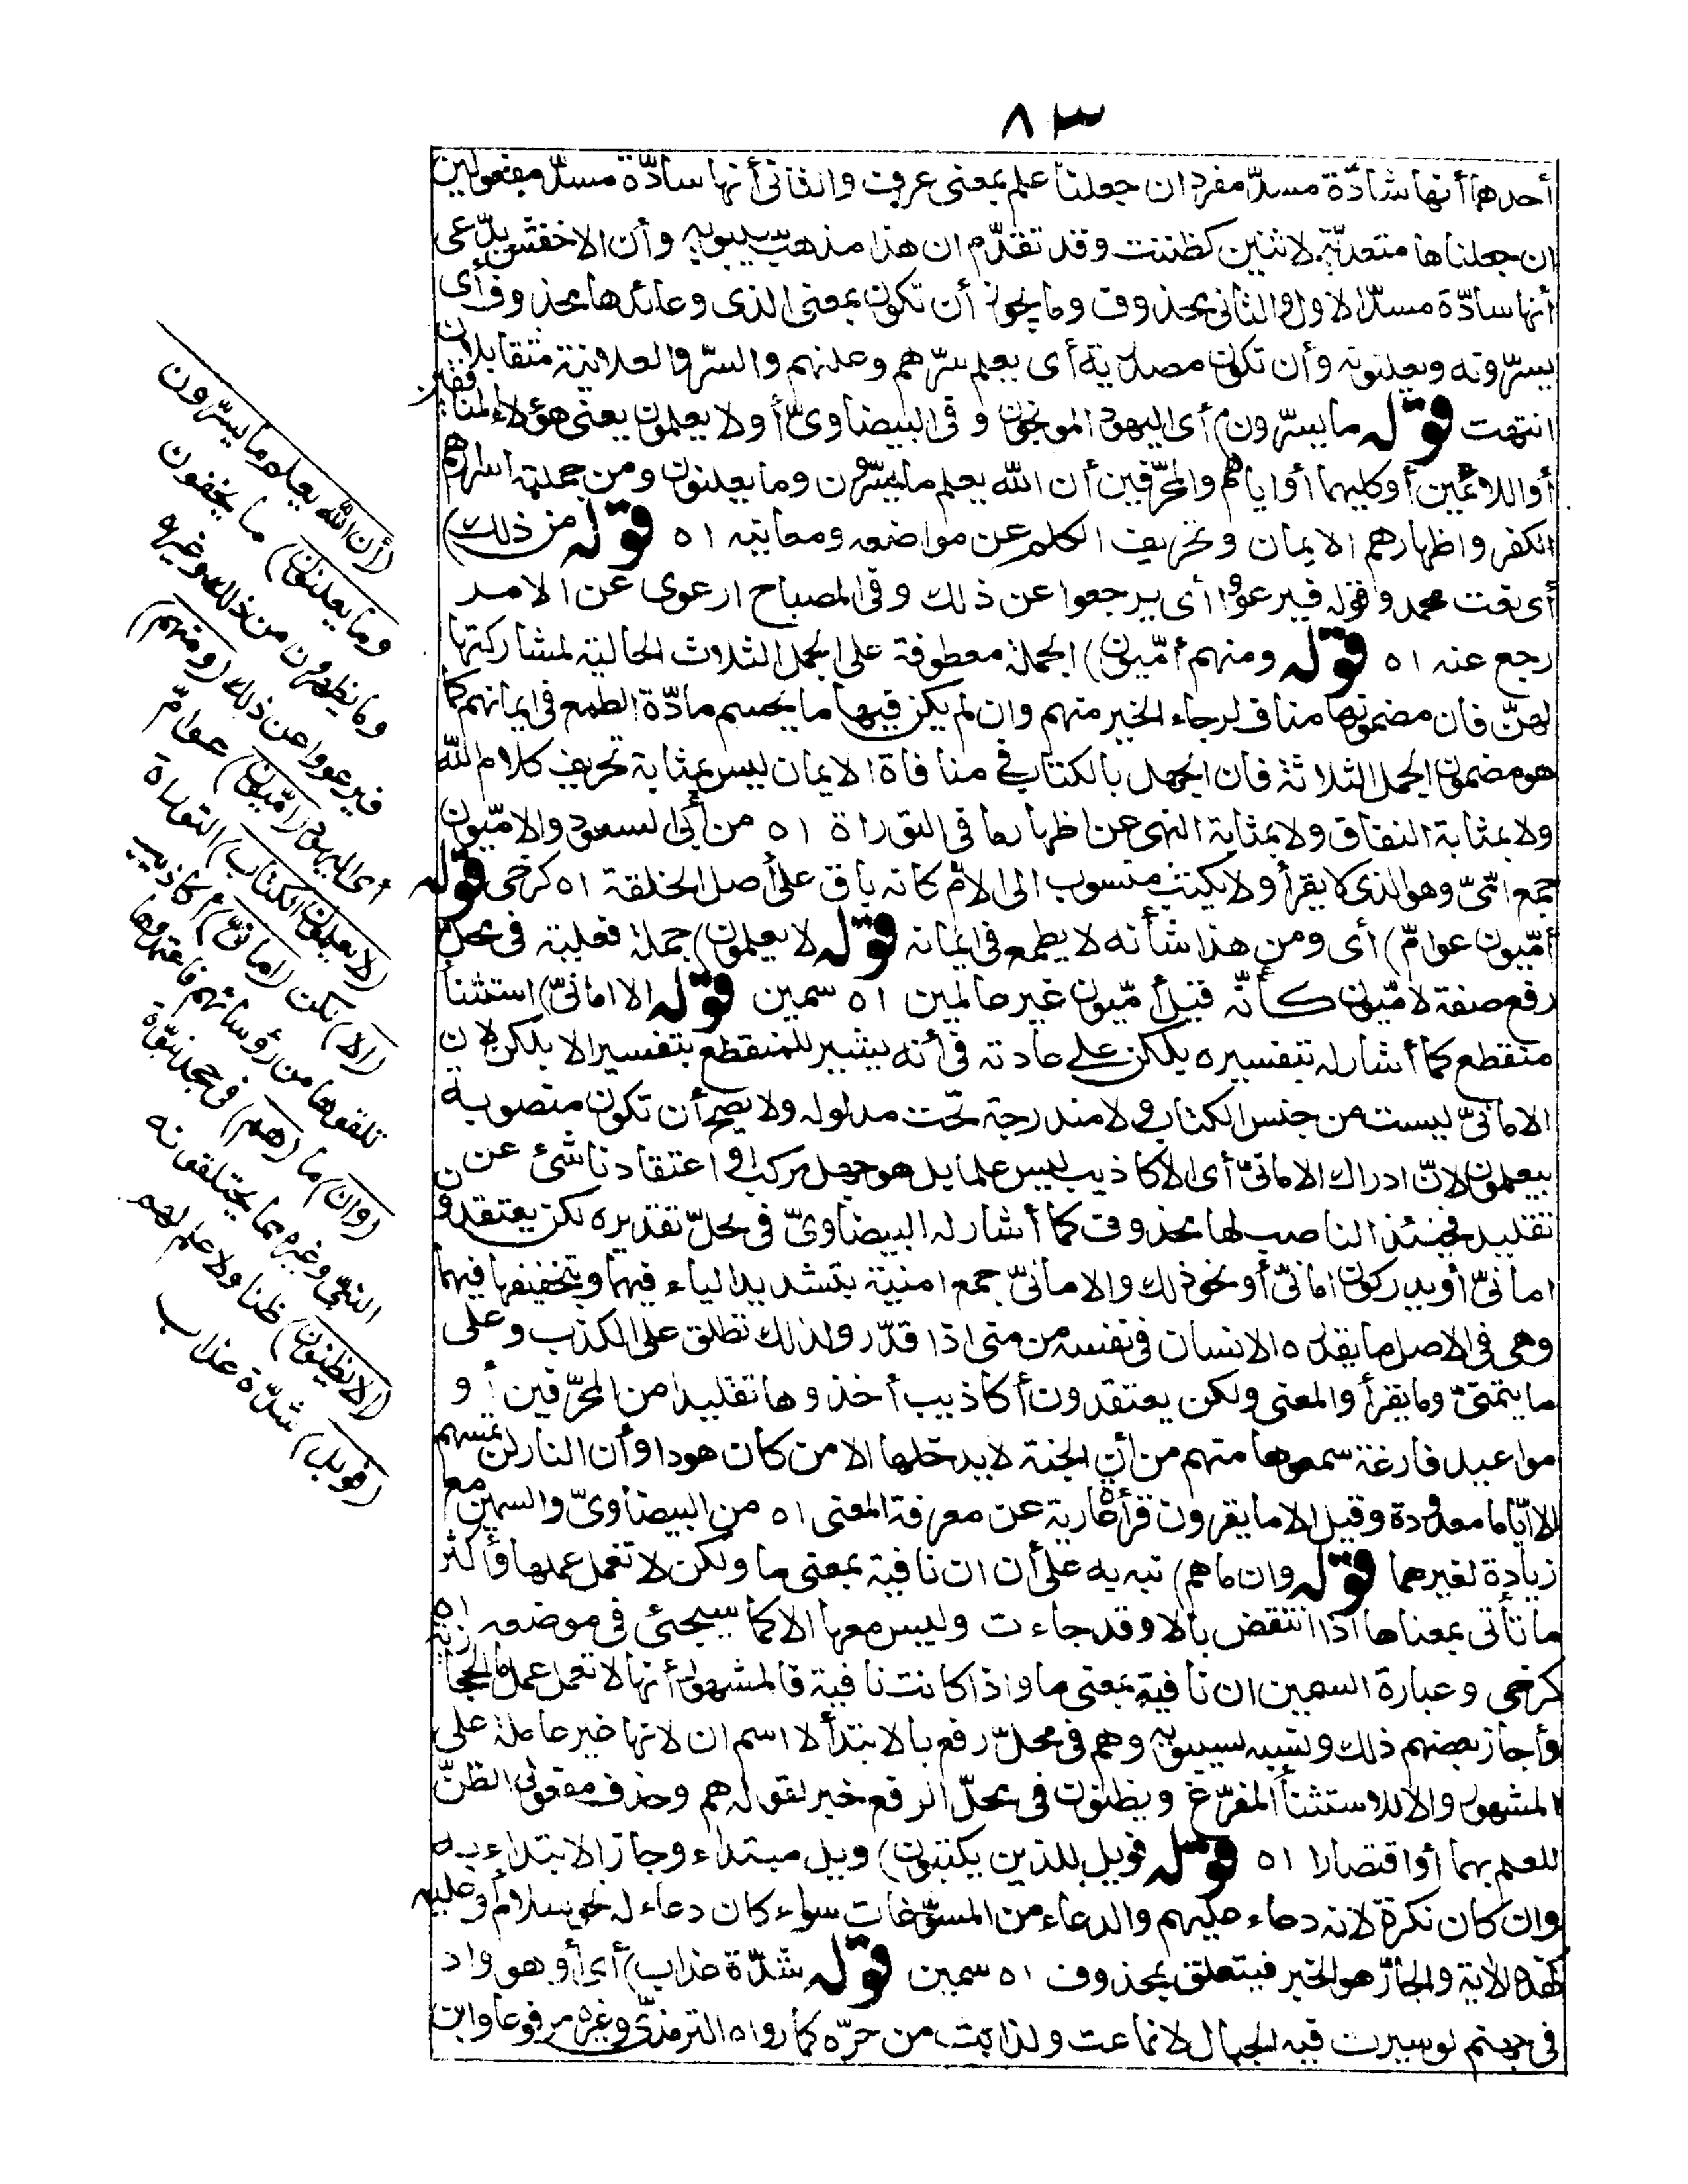 ٨٣
أحدهما أنها سادّة مسدّ مفرد ان جعلنا علم بمعنى عرف والثانى أنها سادّة مسدّ مفعولين
ان جعلناها متعدية لاثنين كظننت وقد تقدّم ان هذا مذهب سيبويه وأن الاخفش يدّعى
أنها سادّة مسدّ الاول والثانى محذوف وما يجوز أن تكون بمعنى الذى وعائدها محذوف أى
يسرّونه ويعلنونه وأن تكون مصدرية أى يعلم سرّهم وعلنهم والسرّ والعلانية متقابلان
انتهت قوله ما يسرّون) أى اليهود الموبخون وفى البيضاوىّ أولا يعلمون يعنى هؤلاء المنافقين
أو اللائمين أو كليهما أو اياهم والمحرّفين أن الله يعلم ما يسرّون وما يعلنون ومن جملته اسرارهم
الكفر واظهارهم الايمان وتحريف الكلم عن مواضعه ومعانيه اه قوله من ذلك)
أى نعت محمد وقوله فيرعووا أى يرجعوا عن ذلك وفى المصباح ارعوى عن الامر
رجع عنه اه قوله ومنهم أمّيون) الجملة معطوفة على الجمل الثلاث الحالية لمشاركتها
لهنّ فان مضمونها مناف لرجاء الخير منهم وان لم يكن فيها ما يحسم مادّة الطمع فى ايمانهم كما
هو مضمون الجمل الثلاثة فان الجهل بالكتاب فى منافاة الايمان ليس بمثابة تحريف كلام الله
ولا بمثابة النفاق ولا بمثابة النهى عن اظهار ما فى التوراة اه من أبى السعود والامّيون
جمع امّىّ وهو الذى لا يقرأ ولا يكتب منسوب الى الامّ كانه باق على أصل الخلقة اه كرخى قوله
أمّيون عوامّ) أى ومن هذا شأنه لا يطمع فى ايمانه قوله لا يعلمون) جملة فعلية فى محلّ
رفع صفة لامّيون كأنّه قيل أمّيون غير عالمين اه سمين قوله الا امانىّ) استثنأ
منقطع كما أشار له بتفسيره بلكن على عادته فى أنه يشير للمنقطع بتفسير الا بلكن لان
الامانىّ ليست من جنس الكتاب ولا مندرجة تحت مدلوله ولا يصح أن تكون منصوبة
بيعلمون لانّ ادراك الامانىّ أى الاكاذيب ليس علما بل هو جهل مركب أو اعتقاد ناشئ عن
تقليد فحينئذ الناصب لها محذوف كما أشار له البيضاوىّ فى محلّ تقديره لكن يعتقدون
امانىّ أو يدركون امانىّ أو نحو ذلك والامانىّ جمع امنية بتشديد الياء فيهما وبتخفيفها فيهما
وهى فى الاصل ما يقدّره الانسان فى نفسه من منى اذا قدّر ولذلك تطلق على الكذب وعلى
ما يتمنىّ وما يقرأ والمعنى ولكن يعتقدون أكاذيب أخذوها تقليدا من المحرّفين أو
مواعيد فارغة سمعوها منهم من أن الجنة لا يدخلها الا من كان هودا وأن النار لن تمسهم
الا ايّاما معدودة وقيل الا ما يقرون قرأة عارية عن معرفة المعنى اه من البيضاوىّ والسمين مع
زيادة لغيرهما قوله وان ما هم) نبه به على أن ان نافية بمعنى ما ولكن لا تعمل عملها وأكثر
ما تأتى بمعناها اذا انتقض بالا وقد جاءت وليس معها الا كما سيجئ فى موضعه اه
كرخى وعبارة السمين ان نافية بمعنى ما واذا كانت نافية فالمشهور أنها لا تعمل عمل ما الحجازية
وأجاز بعضهم ذلك ونسبه لسيبويه وهم فى محلّ رفع بالابتدأ لا اسم ان لانها غير عاملة على
المشهور والا للاستثنأ المفرّغ ويظنون فى محلّ الرفع خبر لقوله هم وحذف مفعولى الظنّ
للعلم بهما أو اقتصارا اه قوله فويل للذين يكتبون) ويل مبتداء وجاز الابتداء به
وان كان نكرة لانه دعاء عليهم والدعاء من المسوّغات سواء كان دعاء له نحو سلام أو عليه
كهذه الاية والجارّ هو الخبر فيتعلق بمحذوف اه سمين قوله شدّة عذاب) أى أو هو واد
فى جهنم لو سيرت فيه الجبال لانماعت ولذابت من حرّه كما رواه الترمذىّ وغيره مرفوعا وابن
(أن الله يعلم ما يسرّون
وما يعلنون) ما يخفون
وما يظهرون من ذلك وغيره
فيرعووا عن ذلك (ومنهم)
أى اليهود (امّيون) عوامّ
(لا يعلمون الكتاب) التوراة
(الا) لكن (امانىّ) اكاذيب
تلقوها من رؤسائهم فاعتمدوها
(وان) ما (هم) فى جحد نبوّة
النبىّ وغيره مما يختلقونه
(الا يظنون) ظنا ولا علم لهم
(فويل) شدّة عذاب